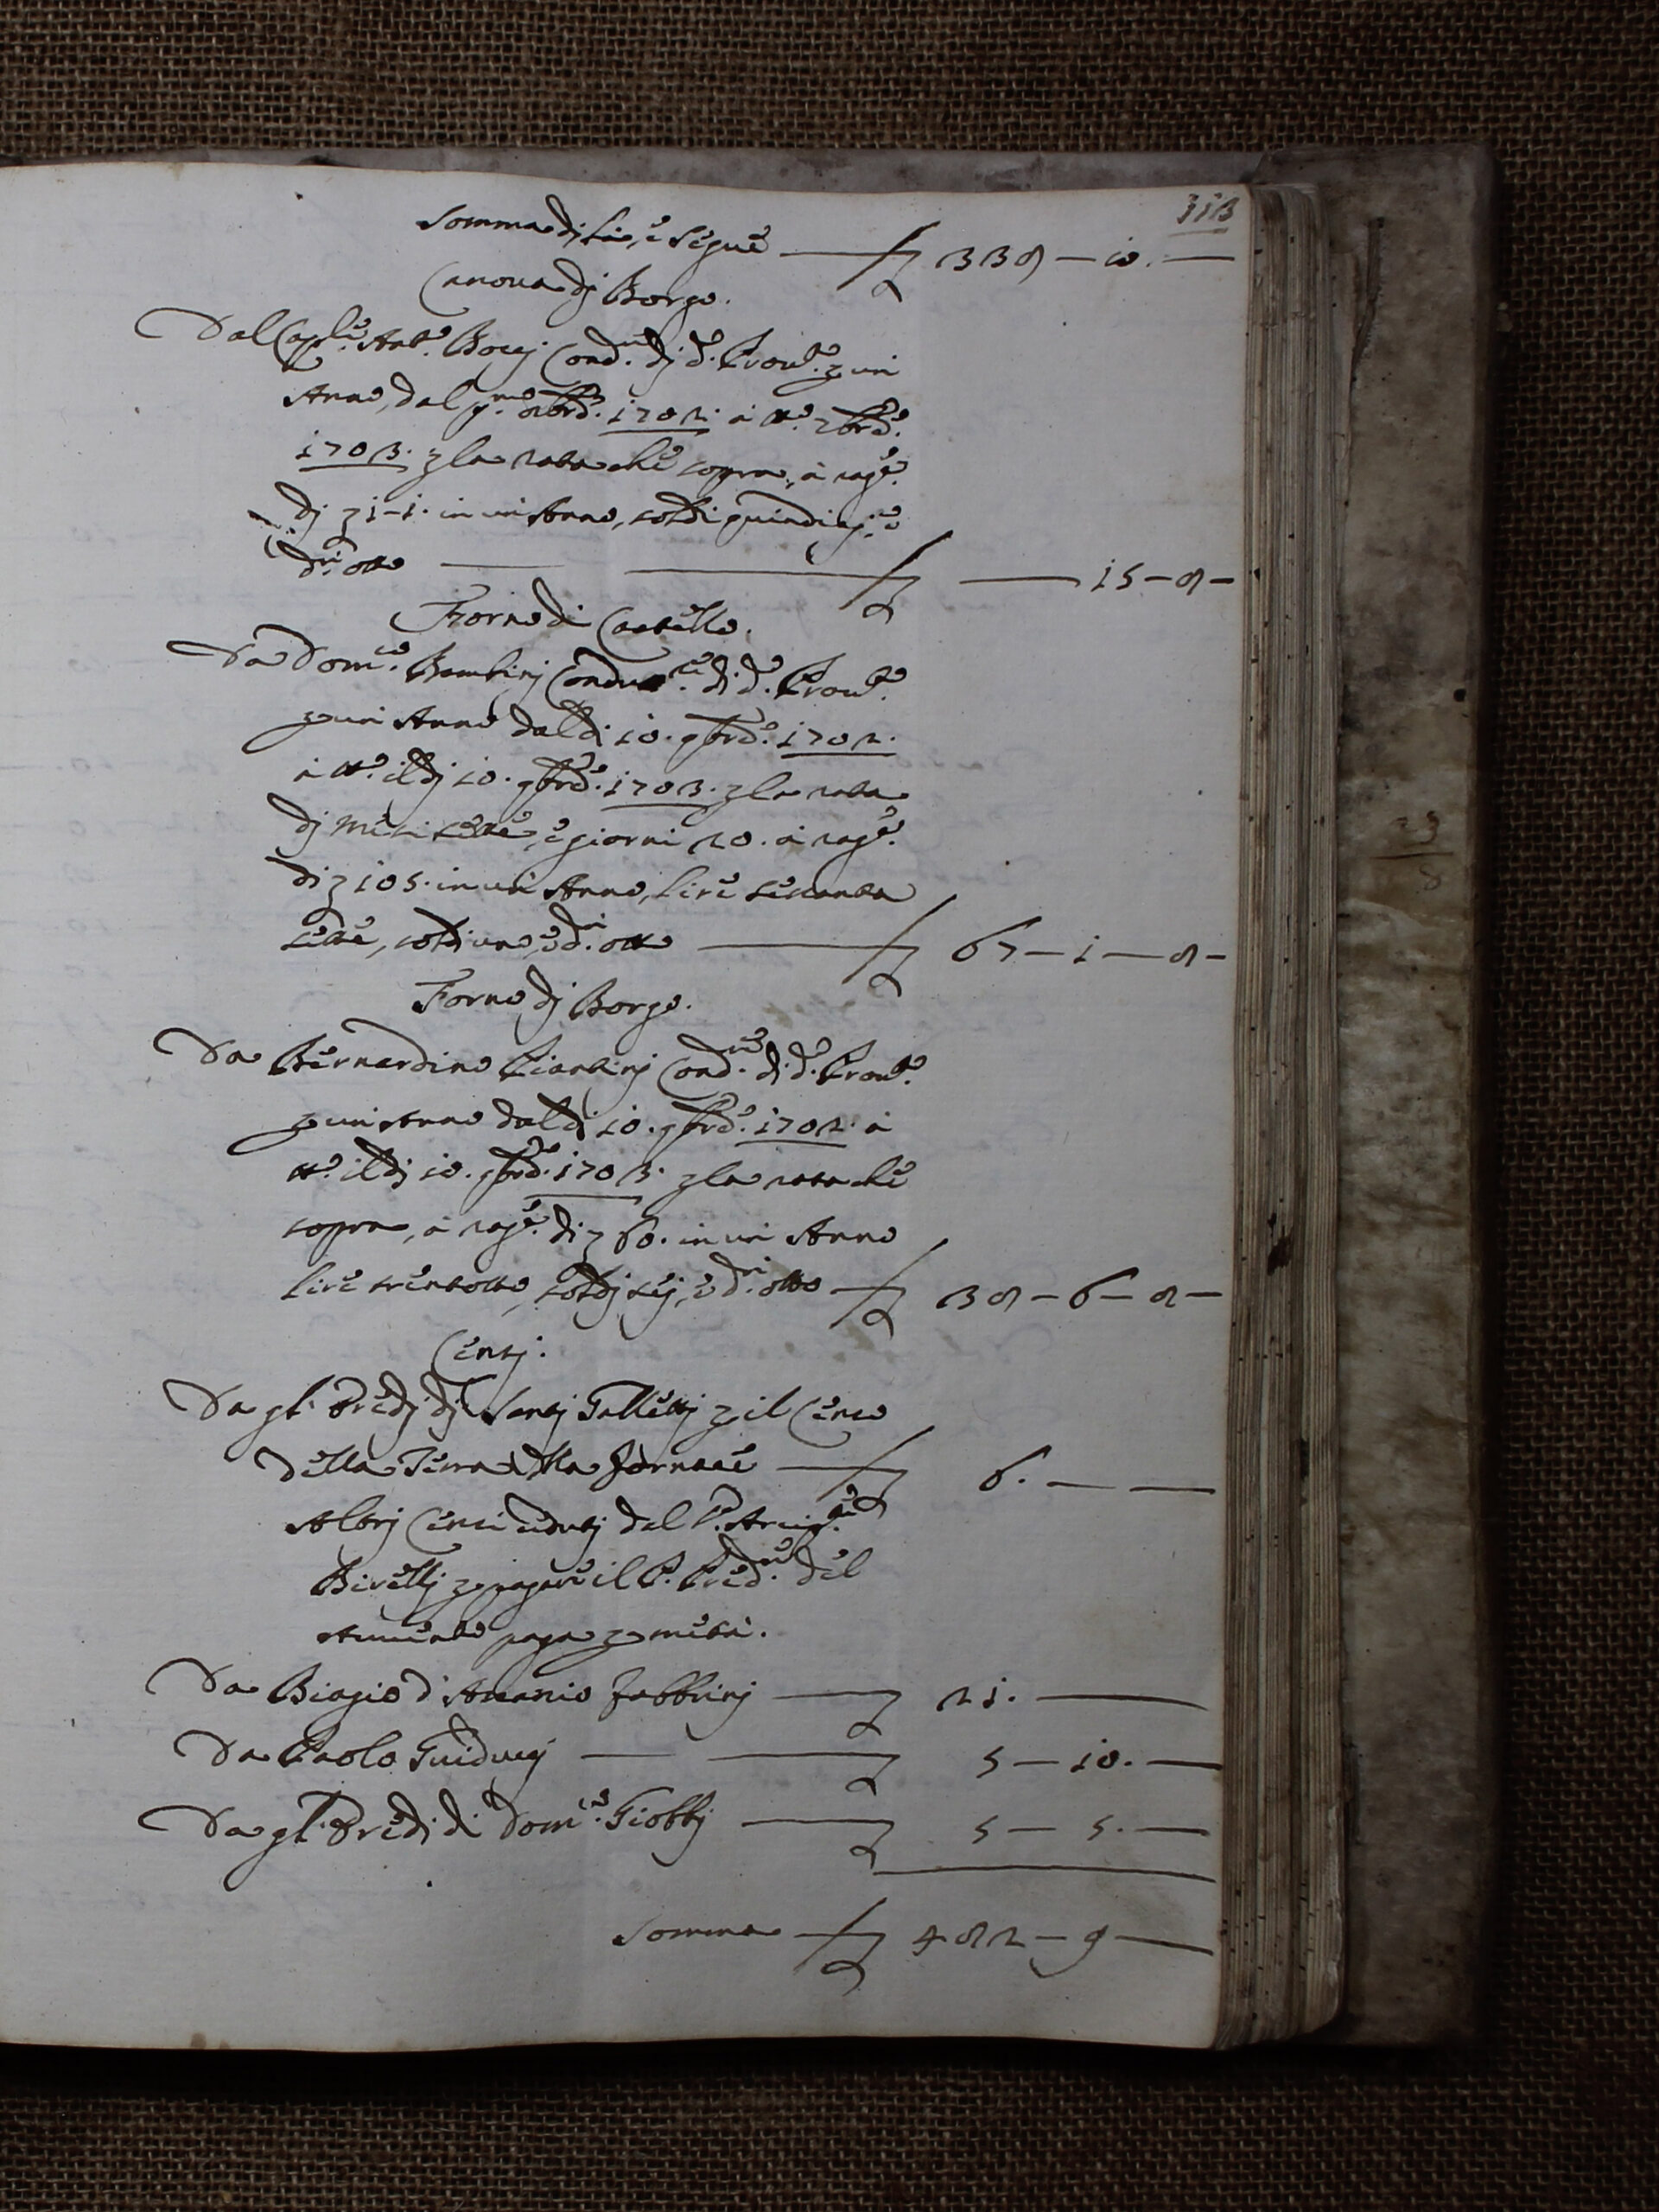 313
Somma di là, e segue — £ 338 — 10. —
Canova di Borgo.
Dal Cap.le Ant.o Bocci Cond.re di d.o Prov.to p un
Anno, dal p.mo 9bre. 1702. à tt.o 8bre.
1703. p la rata che sopra, à rag.e
di £ 1-3. in un Anno, soldi quindici, e
d.ri otto — £ — 15 — 8 —
Forno di Castello.
Da Dom.co Bambinj Condutt.re di d.o Prov.to
p un Anno dal dì 10. 9bre. 1702.
à tt.o il dj 10. 9bre. 1703. p la rata
dj Mesi sette, e giorni 20. à rag.e
di £ 105. in un Anno, lire sessanta
sette, soldi uno, e d.ri otto — £ 67 — 1 — 8 —
Forno dj Borgo.
Da Bernardino Ciantinj Cond.re di d.o Prov.to
p un Anno dal dì 10. 9bre. 1702. à
tt.o il dj 10. 9bre. 1703. p la rata che
sopra, à rag.e di £ 60. in un Anno
lire trentotto, soldj sej, e d.ri otto — £ 38 — 6 — 8 —
Censj.
Da gl'Eredj dj Santj Tallettj p il Censo
della Terra della fornace — £ 6. — —
Altrj Censi ceduti dal S.
Birellj p pagare il P. Pred.re del
Avvento paga p metà.
Da Biagio d'Ascanio fabbrinj — £ 21. —
Da Paolo Guiduccj — £ 5 — 10. —
Da gl'Eredi di Dom.co Giobbj — £ 5 — 5. —
Somma — £ 482 — 9 —
23
8